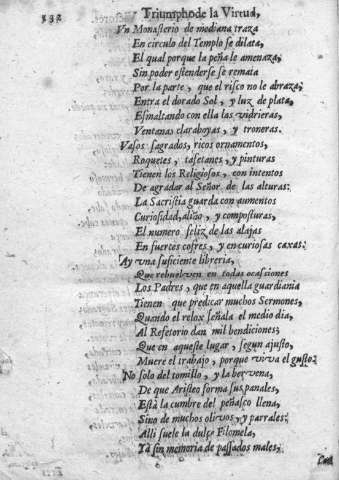 332
Triumpho de la Virtud,
Vn Monasterio de mediana traza
En circulo del Templo se dilata,
El qual porque la peña le amenaza;
Sin poder estenderse se remata
Por la parte, que el risco no le abraza;
Entra el dorado Sol, y luz de plata,
Esmaltando con ella las vidrieras,
Ventanas claraboyas, y troneras.
Vasos sagrados, ricos ornamentos,
Roquetes, tafetanes, y pinturas
Tienen los Religiosos, con intentos
De agradar al Señor de las alturas:
La Sacristia guarda con aumentos
Curiosidad, aliño, y composturas,
El numero feliz de las alajas
En fuertes cofres, y en curiosas caxas.
Ay vna suficiente libreria,
Que rebuelven en todas ocasiones
Los Padres, que en aquella guardiania
Tienen que predicar muchos Sermones,
Quando el relox señala el medio dia,
Al Refetorio dan mil bendiciones;
Que en aqueste lugar, segun ajusto,
Muere el trabajo, porque viva el gusto.
No solo del tomillo, y la bervena,
De que Aristeo forma sus panales,
Està la cumbre del peñasco llena,
Sino de muchos olivos, y parrales:
Alli suele la dulçe Filomela,
Ya sin memoria de passados males,